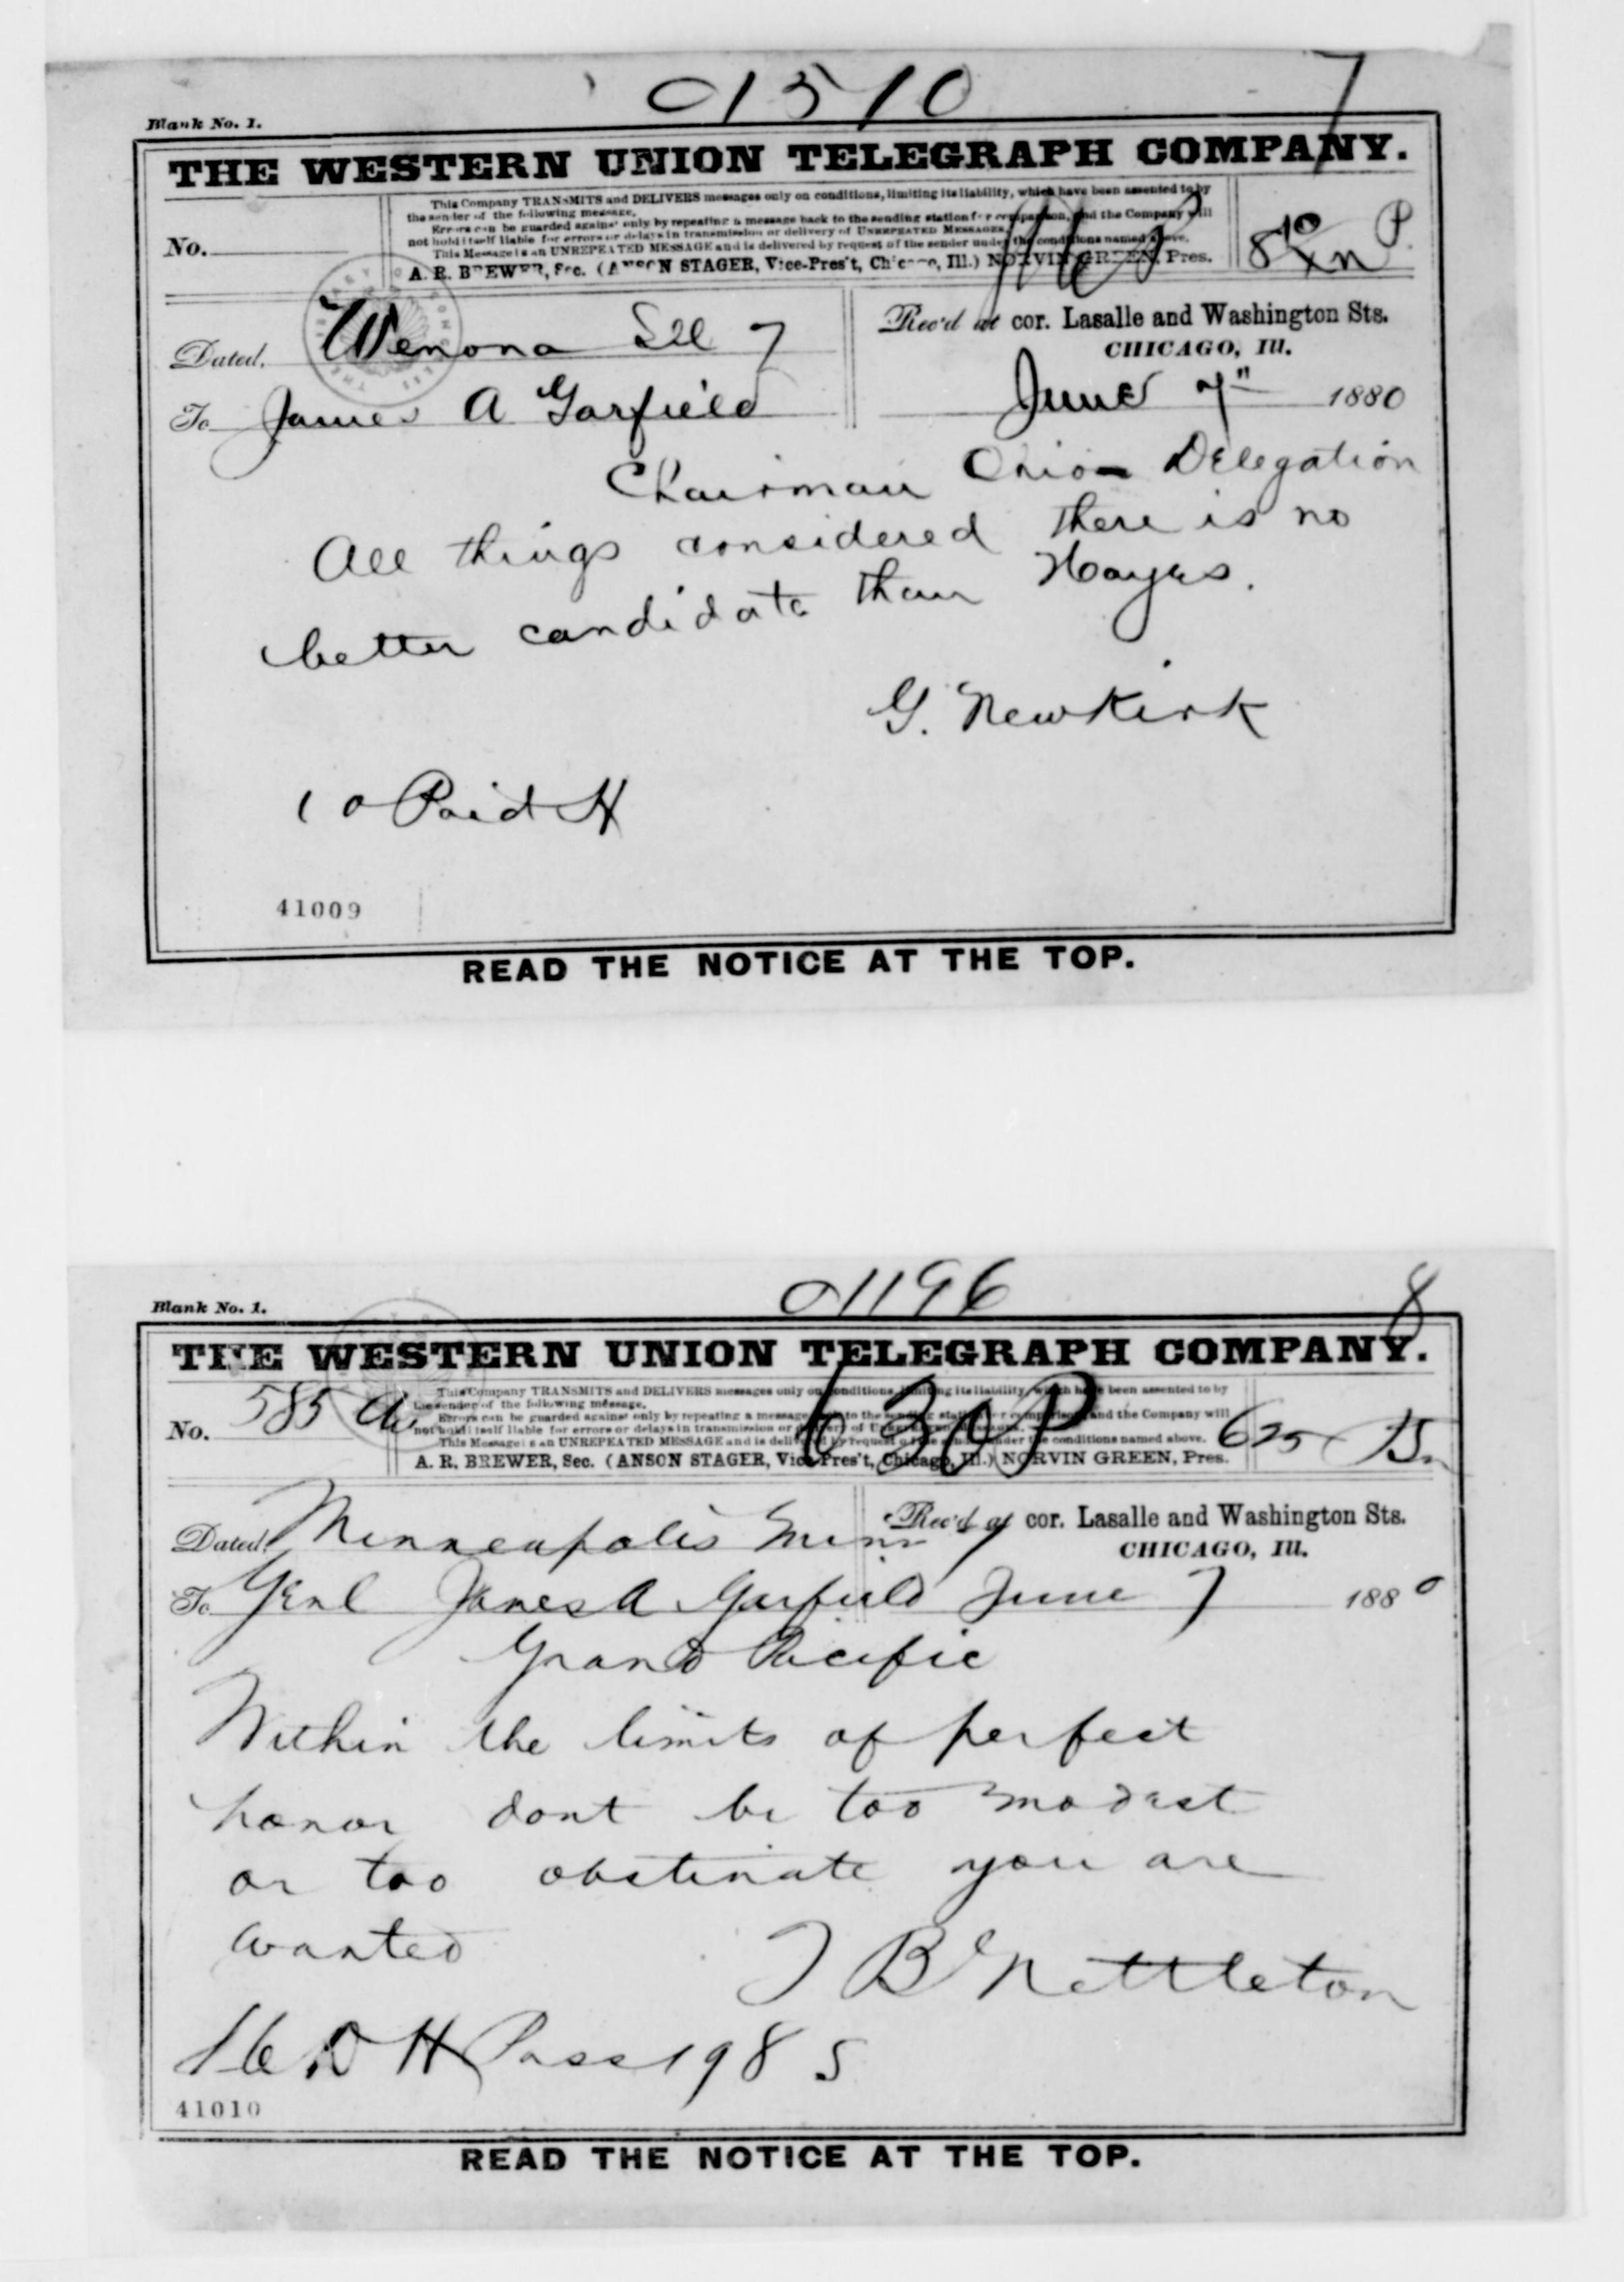 01510
7
Blank No. 1.
THE WESTERN UNION TELEGRAPH COMPANY.
This Company TRANSMITS and DELIVERS messages only on conditions, limiting its liability, which have been assented to by
the sender of the following message.
Errors can be guarded against only by repeating a message back to the sending station for comparison, and the Company will
not hold itself liable for errors or delays in transmission or delivery of UNREPEATED MESSAGES.
This Message is an UNREPEATED MESSAGE and is delivered by request of the sender under the conditions named above.
A. R. BREWER, Sec. (ANSON STAGER, Vice-Pres't, Chicago, Ill.) NORVIN GREEN, Pres.
No.
P.
Dated, Wenona Ill 7
Rec'd at cor. Lasalle and Washington Sts.
CHICAGO, Ill.
June 7" 1880
To James A Garfield
Chairman Ohio Delegation
All things considered there is no
better candidate than Hayes.
G. Newkirk
10 Paid H
41009
READ THE NOTICE AT THE TOP.
01196
8
Blank No. 1.
THE WESTERN UNION TELEGRAPH COMPANY.
This Company TRANSMITS and DELIVERS messages only on conditions, limiting its liability, which have been assented to by
the sender of the following message.
Errors can be guarded against only by repeating a message back to the sending station for comparison, and the Company will
not hold itself liable for errors or delays in transmission or delivery of UNREPEATED MESSAGES.
This Message is an UNREPEATED MESSAGE and is delivered by request of the sender under the conditions named above.
A. R. BREWER, Sec. (ANSON STAGER, Vice-Pres't, Chicago, Ill.) NORVIN GREEN, Pres.
No. 585
630P
625
Dated, Minneapolis Minn 7
Rec'd at cor. Lasalle and Washington Sts.
CHICAGO, Ill.
To Genl James A Garfield June 7 1880
Grand Pacific
Within the limits of perfect
honor dont be too modest
or too obstinate you are
wanted
B Nettleton
16 D H Pass 198 S
41010
READ THE NOTICE AT THE TOP.